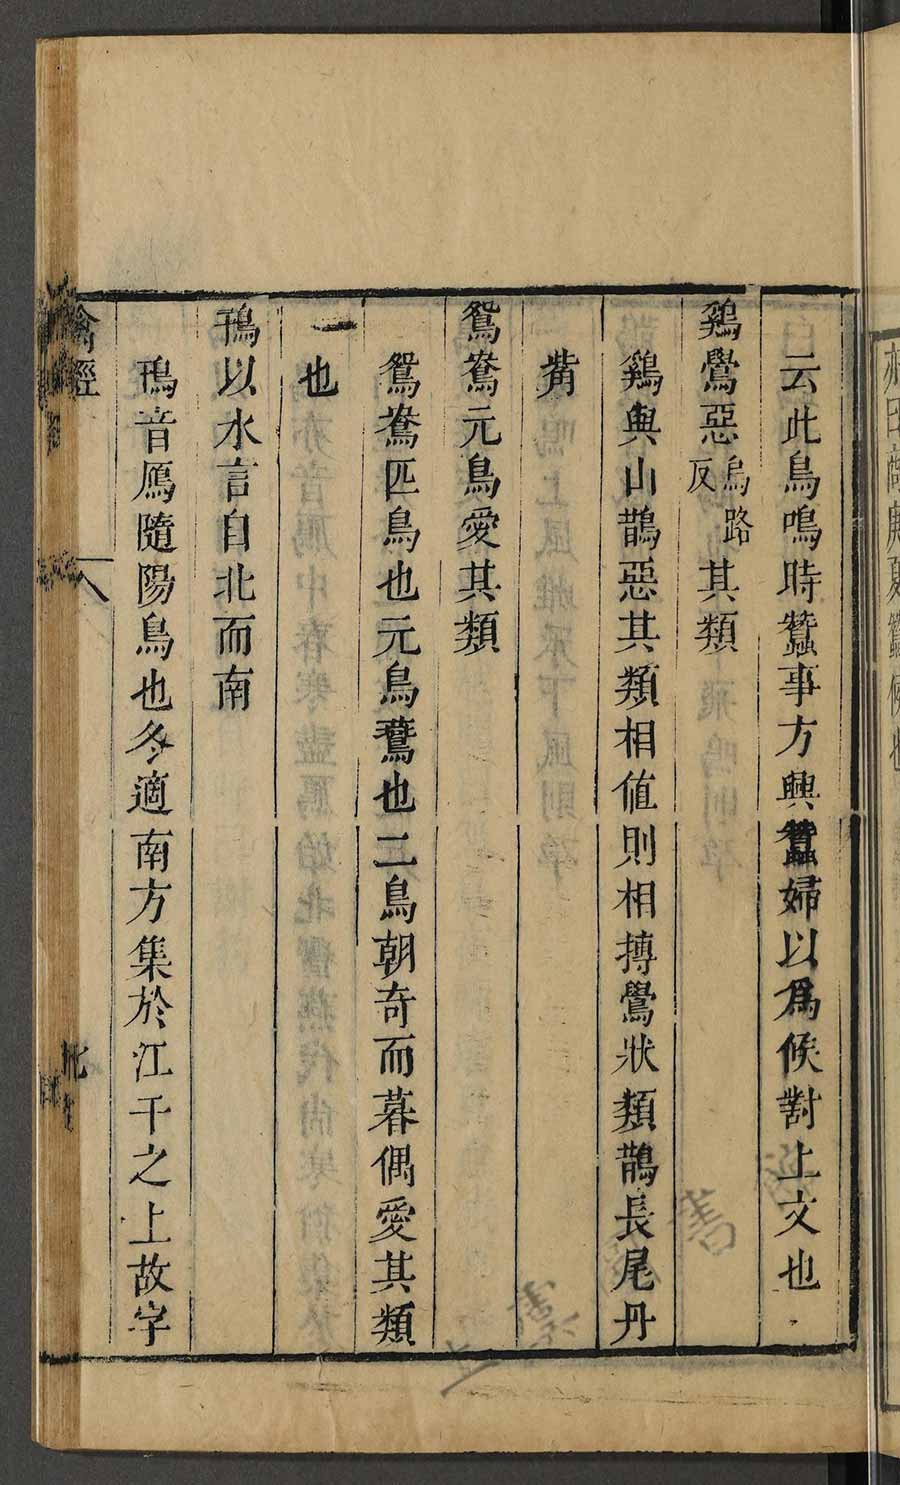 云此鳥鳴時蠶事方興蠶婦以爲候對上文也
鷄鷽惡烏路反其類
鷄與山鵲惡其類相值則相搏鷽狀類鵲長尾丹
觜
鴛鴦元鳥愛其類
鴛鴦匹鳥也元鳥鷰也二鳥朝奇而暮偶愛其類
一也
鳱以水言自北而南
鳱音鴈隨陽鳥也冬適南方集於江干之上故字
禽經
八